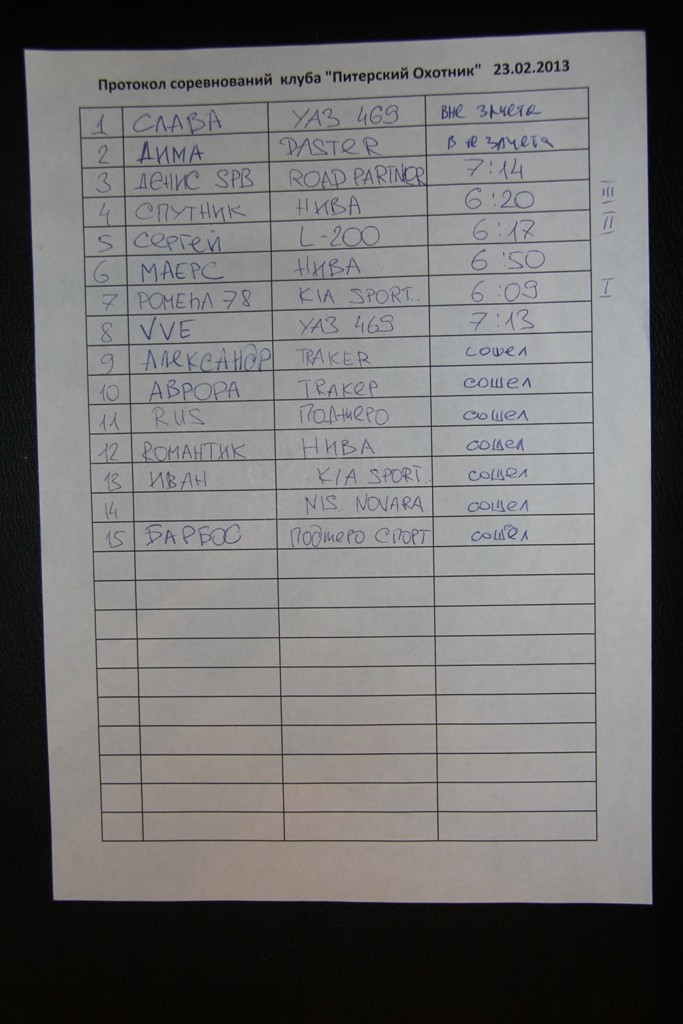 Протокол соревнований клуба "Питерский Охотник" 23.02.2013
1 СЛАВА УАЗ 469 вне зачета
2 ДИМА DASTER вне зачета
3 ДЕНИС SPB ROAD PARTNER 7:14
4 СПУТНИК НИВА 6:20 III
5 Сергей L-200 6:17 II
6 МАЕРС НИВА 6:50
7 РОМЕЛ 78 KIA SPORT.. 6:09 I
8 VVE УАЗ 469 7:13
9 АЛЕКСАНДР TRAKER сошел
10 АВРОРА ТРАКЕР сошел
11 RUS ПАДЖЕРО сошел
12 РОМАНТИК НИВА сошел
13 ИВАН KIA SPORT.. сошел
14 NIS. NOVARA сошел
15 БАРБОС ПОДЖЕРО СПОРТ сошел